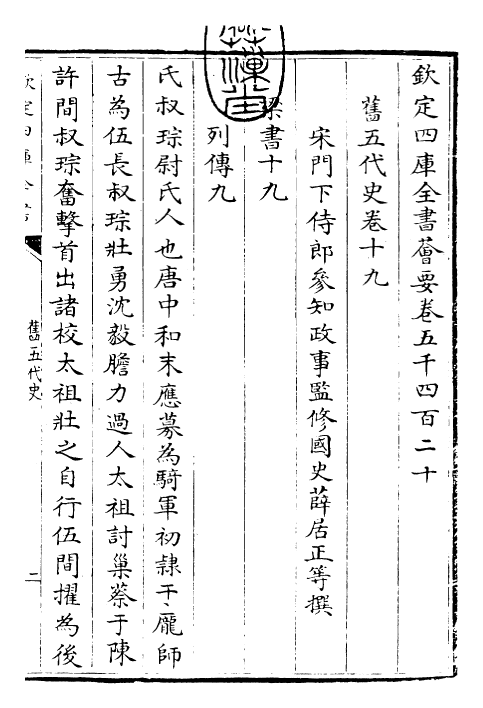 欽定四庫全書薈要卷五千四百二十
舊五代史卷十九
宋門下侍郎參知政事監修國史薛居正等撰
梁書十九
列傳九
氏叔琮尉氏人也唐中和末應募為騎軍初隷于龐師
古為伍長叔琮壯勇沈毅膽力過人太祖討巢蔡于陳
許間叔琮奮擊首出諸校太祖壯之自行伍間擢為後
欽定四庫全書
舊五代史